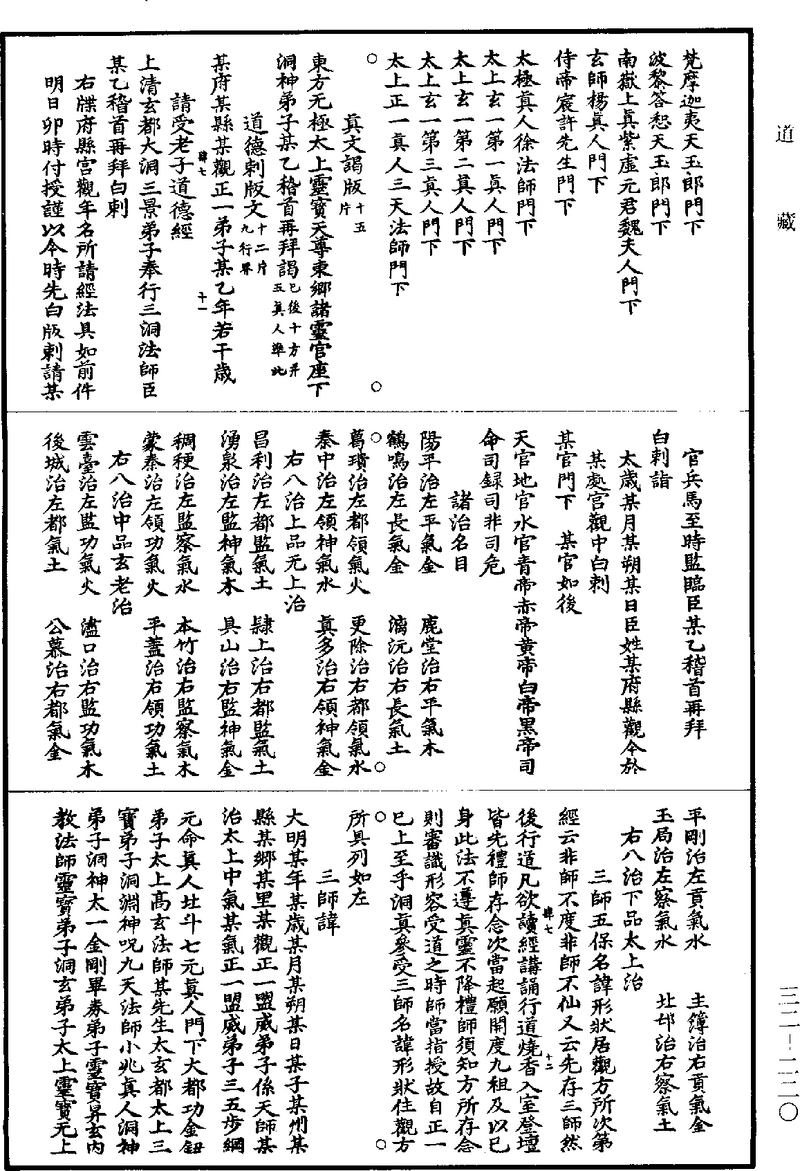 道藏
梵摩迦夷天玉郎門下
波黎答惒天玉郎門下
南嶽上真紫虛元君魏夫人門下
玄師楊真人門下
侍帝宸許先生門下
太極真人徐法師門下
太上玄一第一真人門下
太上玄一第二真人門下
太上玄一第三真人門下
太上正一真人三天法師門下
真文謁版十五片
東方元極太上靈寶天尊東鄉諸靈官座下
洞神弟子某乙稽首再拜謁已後十方并五真人準此
道德剌版文十二片九行界
某府某縣某觀正一弟子某乙年若干歲
韓七 十一
請受老子道德經
上清玄都大洞三景弟子奉行三洞法師臣
某乙稽首再拜白剌
右牒府縣宮觀年名所請經法具如前件
明日卯時付授謹以今時先白版剌請某
官兵馬至時監臨臣某乙稽首再拜
白剌詣
太歲某月某朔某日臣姓某府縣觀今於
某處宮觀中白剌
某官門下 某官如後
天官地官水官青帝赤帝黃帝白帝黑帝司
命司録司非司危
諸治名目
陽平治左平氣金 鹿堂治右平氣木
鶴鳴治左長氣金 漓沅治右長氣土
葛璝治左都領氣火 更除治右都領氣水
秦中治左領神氣水 真多治右領神氣金
右八治上品元上治
昌利治左都監氣土 隸上治右都監氣土
湧泉治左監神氣木 具山治右監神氣金
稠稉治左監察氣水 本竹治右監察氣木
蒙秦治左領功氣火 平蓋治右領功氣土
右八治中品玄老治
雲臺治左監功氣火 濜口治右監功氣木
後城治左都氣土 公慕治右都氣金
平剛治左貢氣水 主簿治右貢氣金
玉局治左察氣水 北邙治右察氣土
右八治下品太上治
三師五保名諱形狀居觀方所次第
經云非師不度非師不仙又云先存三師然
韓七 十二
後行道凡欲讀經講誦行道燒香入室登壇
皆先禮師存念次當起願開度九祖及以已
身此法不遵真靈不降禮師須知方所存念
則審識形容受道之時師當指授故自正一
已上至乎洞真參受三師名諱形狀住觀方
所具列如左
三師諱
大明某年某歲某月某朔某日某子某州某
縣某鄉某里某觀正一盟威弟子係天師某
治太上中氣某氣正一盟威弟子三五步綱
元命真人北斗七元真人門下大都功金鈕
弟子太上高玄法師某先生太玄都太上三
寶弟子洞淵神呪九天法師小兆真人洞神
弟子洞神太一金剛畢券弟子靈寶昇玄內
教法師靈寶弟子洞玄弟子太上靈寶无上
三二—二二〇